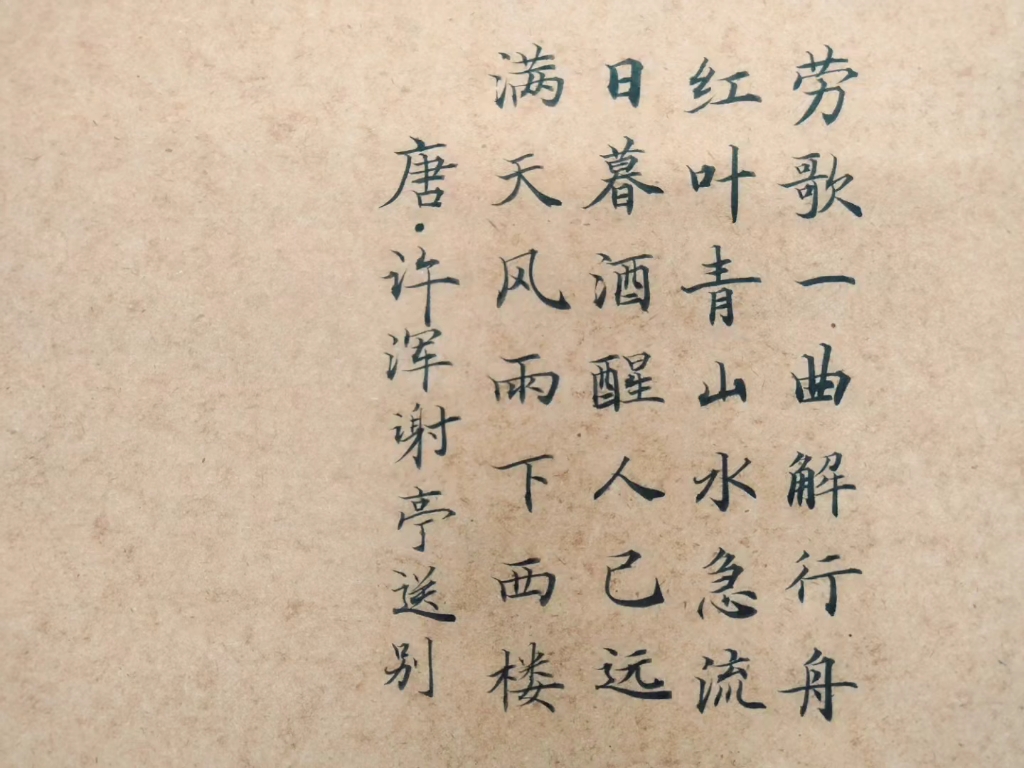 劳歌一曲解行舟
红叶青山水急流
日暮酒醒人已远
满天风雨下西楼
唐·许浑谢亭送别